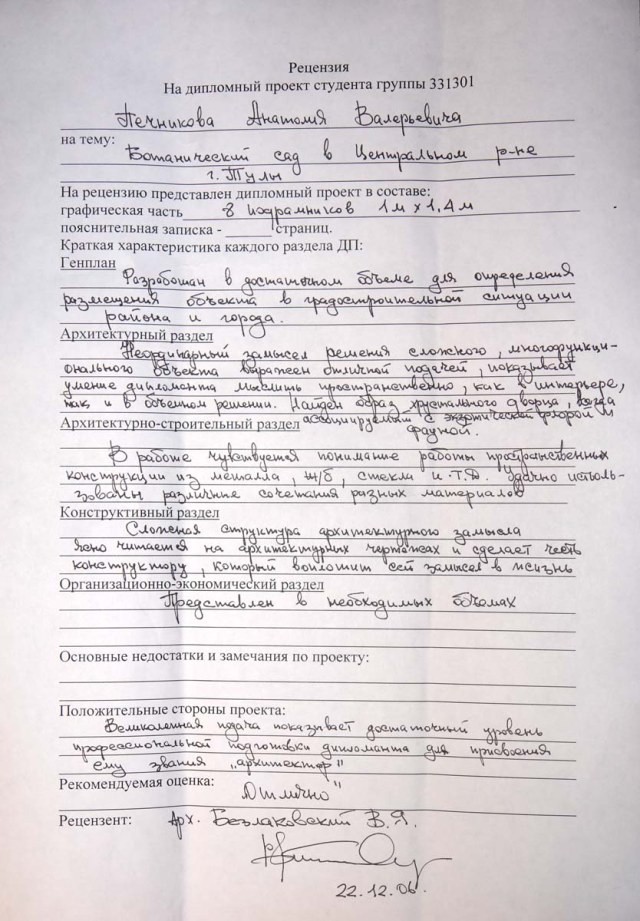 Рецензия
На дипломный проект студента группы 331301
Печникова Анатолия Валерьевича
на тему:
Ботанический сад в Центральном р-не
г. Тулы
На рецензию представлен дипломный проект в составе:
графическая часть 8 подрамников 1м х 1,4 м
пояснительная записка - ______ страниц.
Краткая характеристика каждого раздела ДП:
Генплан
Разработан в достаточном объеме для определения
размещения объекта в градостроительной ситуации
района и города.
Архитектурный раздел
Неординарный замысел решения сложного, многофункци-
онального объекта выражен отличной подачей, показывает
умение дипломанта мыслить пространственно, как в интерьере,
так и в объемном решении. Найден образ хрустального дворца,
Архитектурно-строительный раздел
ассоциируемый с экзотической флорой и
фауной.
В работе чувствуется понимание работы пространственных
конструкции из металла, ж/б, стекла и т.д. Удачно исполь-
зованы различные сочетания разных материалов
Конструктивный раздел
Сложная структура архитектурного замысла
ясно читается на архитектурных чертежах и сделает честь
конструктору, который воплотит сей замысел в жизнь
Организационно-экономический раздел
Представлен в необходимых объемах
Основные недостатки и замечания по проекту:
Положительные стороны проекта:
Великолепная подача показывает достаточный уровень
профессиональной подготовки дипломанта для присвоения
ему звания „архитектор"
Рекомендуемая оценка:
„Отлично"
Рецензент: Арх. Безлаковский В.Я.
22.12.06.